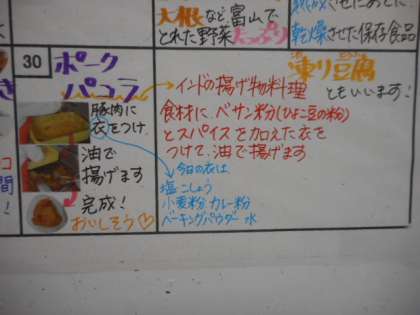 大根など富山で
とれた野菜たっぷり
乾燥させた保存食品
凍り豆腐
ともいいます!
30
ポーク
パコラ
インドの揚げ物料理
食材に、ベサン粉(ひよこ豆の粉)
とスパイスを加えた衣を
つけて、油で揚げます
豚肉に
衣をつけ
油で
揚げます
完成!
おいしそう♡
今日の衣は、
塩こしょう
小麦粉 カレー粉
ベーキングパウダー 水